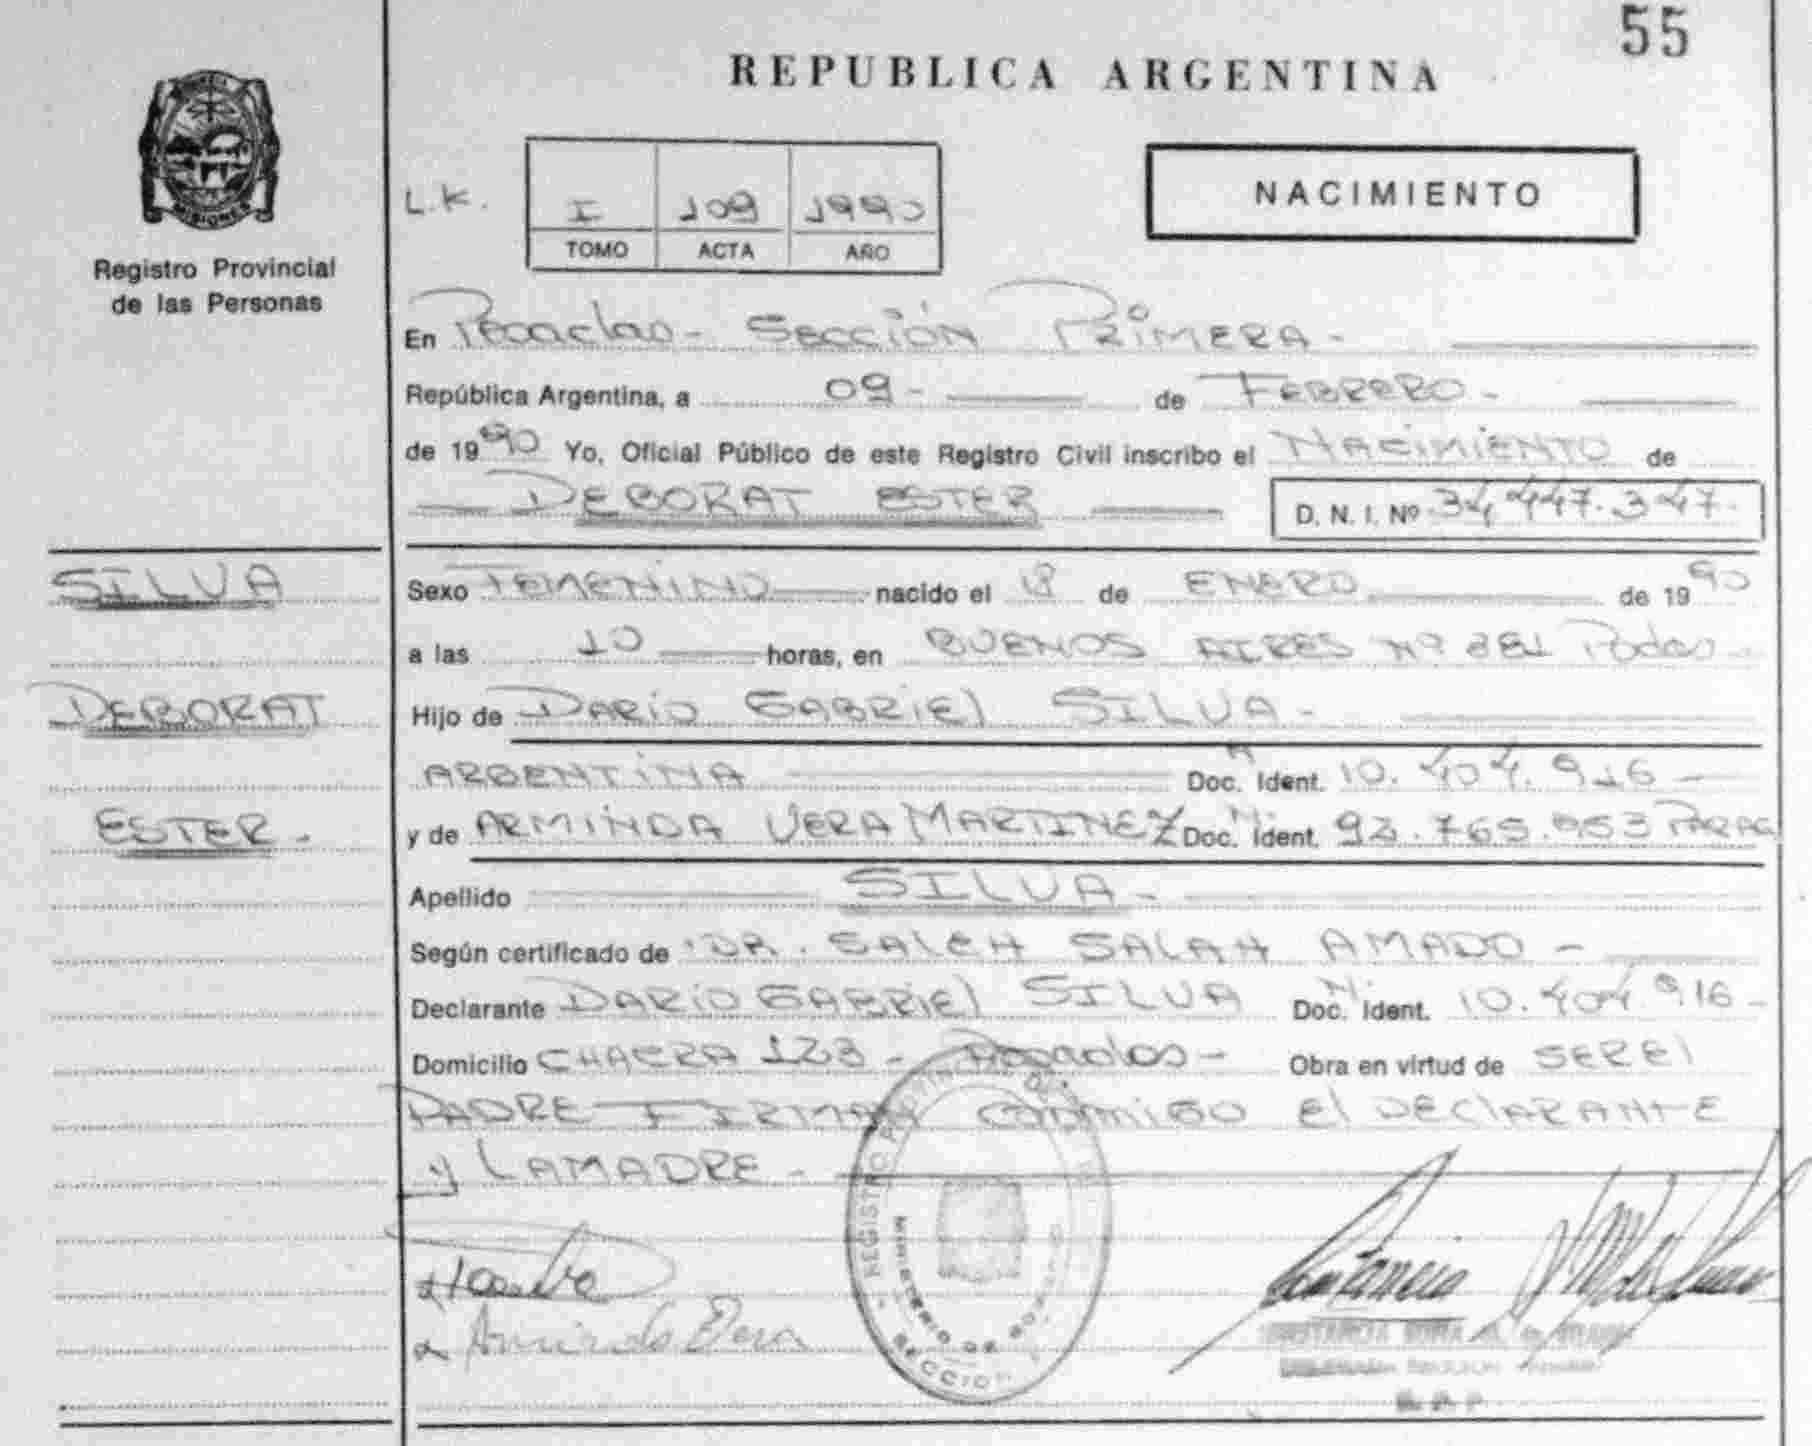 55
REPUBLICA ARGENTINA
MISIONES
Registro Provincial
de las Personas
L.K.
I 109 1990
TOMO ACTA AÑO
NACIMIENTO
En Posadas - SECCIÓN PRIMERA -
República Argentina, a 09 - de FEBRERO -
de 1990 Yo, Oficial Público de este Registro Civil inscribo el NACIMIENTO de
DEBORAT ESTER D. N. I. Nº 34.447.347-
SILVA
DEBORAT
ESTER -
Sexo FEMENINO nacido el 18 de ENERO de 1990
a las 10 horas, en BUENOS AIRES Nº Podas -
Hijo de DARÍO GABRIEl SILVA -
ARGENTINA Doc. Ident. 10.404.916 -
y de ARMINDA VERA MARTINEZ Doc. Ident. 92.765.953 PARAG
Apellido SILVA -
Según certificado de DR. SALEH SALAH AMADO -
Declarante DARÍO GABRIEl SILVA Doc. Ident. 10.404.916 -
Domicilio CHACRA 123 - Posadas - Obra en virtud de SER El
PADRE FIRMAN CONMIGO El DEClARANTE
y LA MADRE -
REGISTRO PROVINCIAL DE
MINISTERIO DE GOBIERNO
SECCION
Arminda Vera